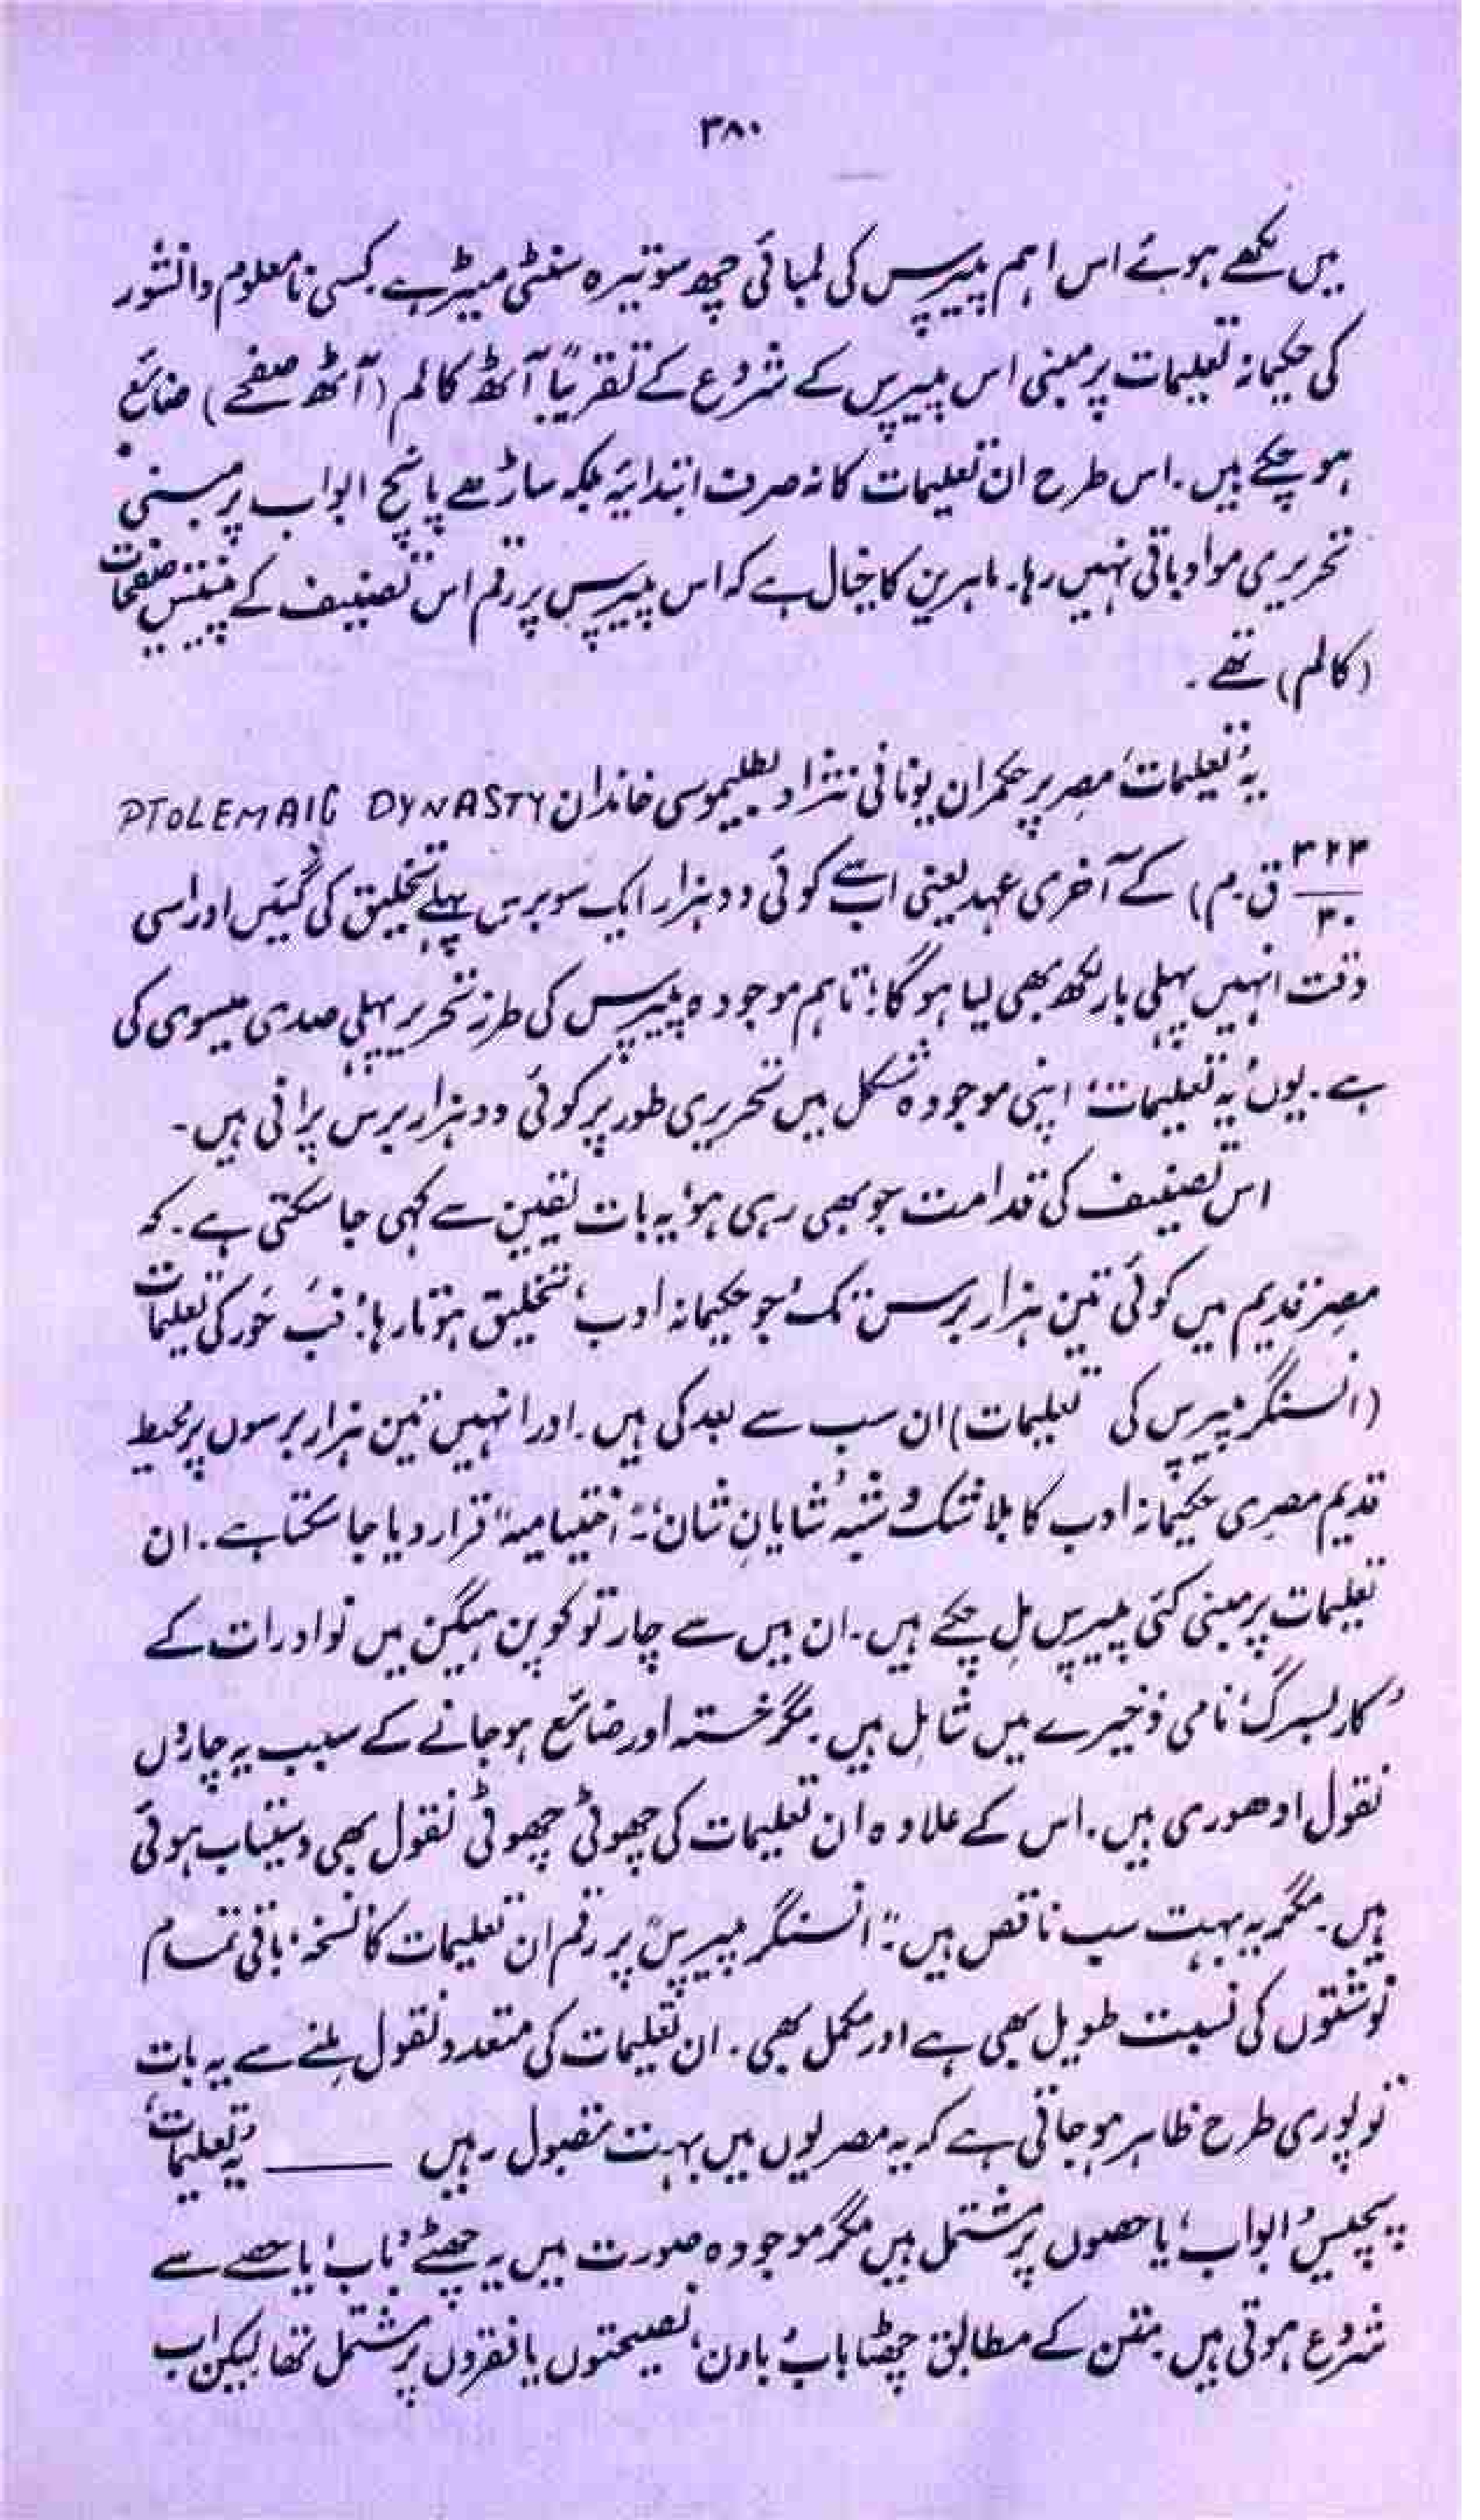 ۳۸۰
میں لکھے ہوئے اس اہم پیپرس کی لمبائی چھ سو تیرہ سنٹی میٹر ہے کسی نامعلوم دانشور
کی حکیمانہ تعلیمات پر مبنی اس پیپرس کے شروع کے تقریباً آٹھ کالم (آٹھ صفحے) ضائع
ہو چکے ہیں۔ اس طرح ان تعلیمات کا نہ صرف ابتدائیہ بلکہ ساڑھے پانچ ابواب پر مبنی
تحریری مواد باقی نہیں رہا۔ ماہرین کا خیال ہے کہ اس پیپرس پر رقم اس تصنیف کے پینتیس صفحات
(کالم) تھے۔
یہ 'تعلیمات' مصر پر حکمران یونانی نژاد بطلیموسی خاندان PTOLEMAIC DYNASTY
۳۲۳/۳۰ ق۔م) کے آخری عہد یعنی اب سے کوئی دو ہزار ایک سو برس پہلے تخلیق کی گئیں اور اسی
وقت انہیں پہلی بار لکھ بھی لیا ہوگا؛ تاہم موجودہ پیپرس کی طرز تحریر پہلی صدی عیسوی کی
ہے۔ یوں 'یہ تعلیمات' اپنی موجودہ شکل میں تحریری طور پر کوئی دو ہزار برس پرانی ہیں۔
اس تصنیف کی قدامت جو بھی رہی ہو یہ بات یقین سے کہی جا سکتی ہے۔ کہ
مصر قدیم میں کوئی تین ہزار برس تک 'جو حکیمانہ ادب' تخلیق ہوتا رہا؛ فب حور کی تعلیمات
(انسنگر پیپرس کی تعلیمات) ان سب سے بعد کی ہیں۔ اور انہیں تین ہزار برسوں پر محیط
قدیم مصری حکیمانہ ادب کا بلا شک و شبہ شایانِ شان "اختتامیہ" قرار دیا جا سکتا ہے۔ ان
تعلیمات پر مبنی کئی پیپرس مل چکے ہیں۔ ان میں سے چار تو کوپن ہیگن میں نوادرات کے
'کارلسبرگ' نامی ذخیرے میں شامل ہیں۔ مگر خستہ اور ضائع ہو جانے کے سبب یہ چاروں
نقول ادھوری ہیں۔ اس کے علاوہ ان تعلیمات کی چھوٹی چھوٹی نقول بھی دستیاب ہوئی
ہیں۔ مگر یہ بہت سب ناقص ہیں۔ "انسنگر پیپرس" پر رقم ان تعلیمات کا نسخہ، باقی تمام
نوشتوں کی نسبت طویل بھی ہے اور مکمل بھی۔ ان تعلیمات کی متعدد نقول ملنے سے یہ بات
تو پوری طرح ظاہر ہو جاتی ہے کہ یہ مصریوں میں بہت مقبول رہیں ——— 'یہ تعلیمات'
پچیس 'ابواب' یا حصوں پر مشتمل ہیں مگر موجودہ صورت میں یہ چھٹے 'باب' یا حصے سے
شروع ہوتی ہیں۔ متن کے مطابق چھٹا باب باون نصیحتوں یا فقروں پر مشتمل تھا لیکن اب